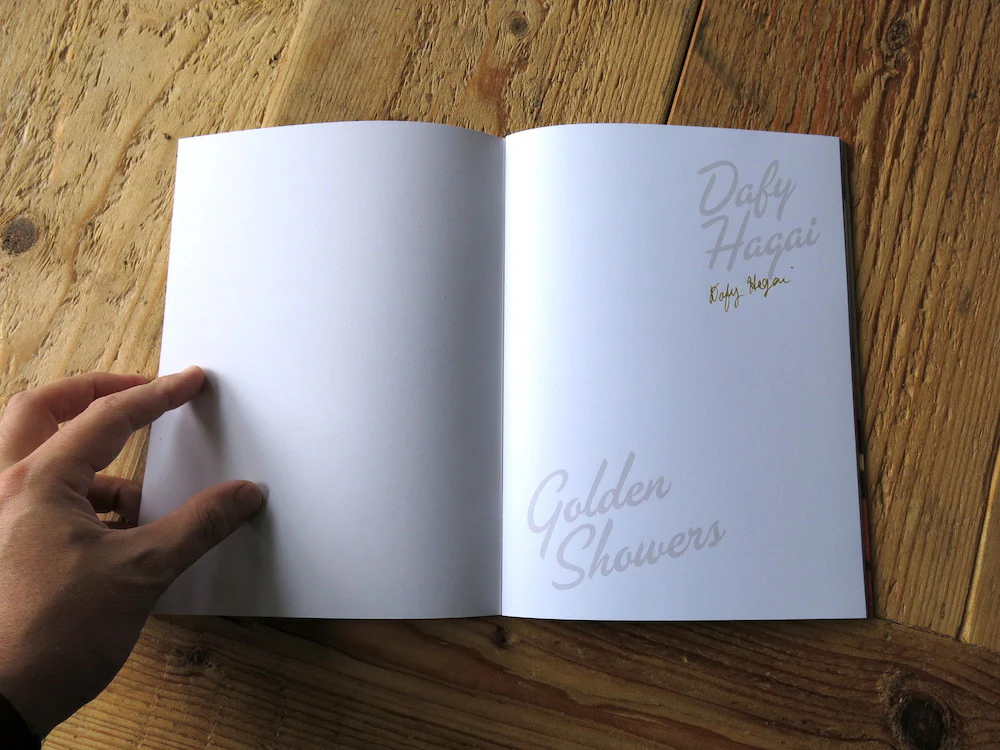 Dafy
Hagai
Dafy Hagai
Golden
Showers